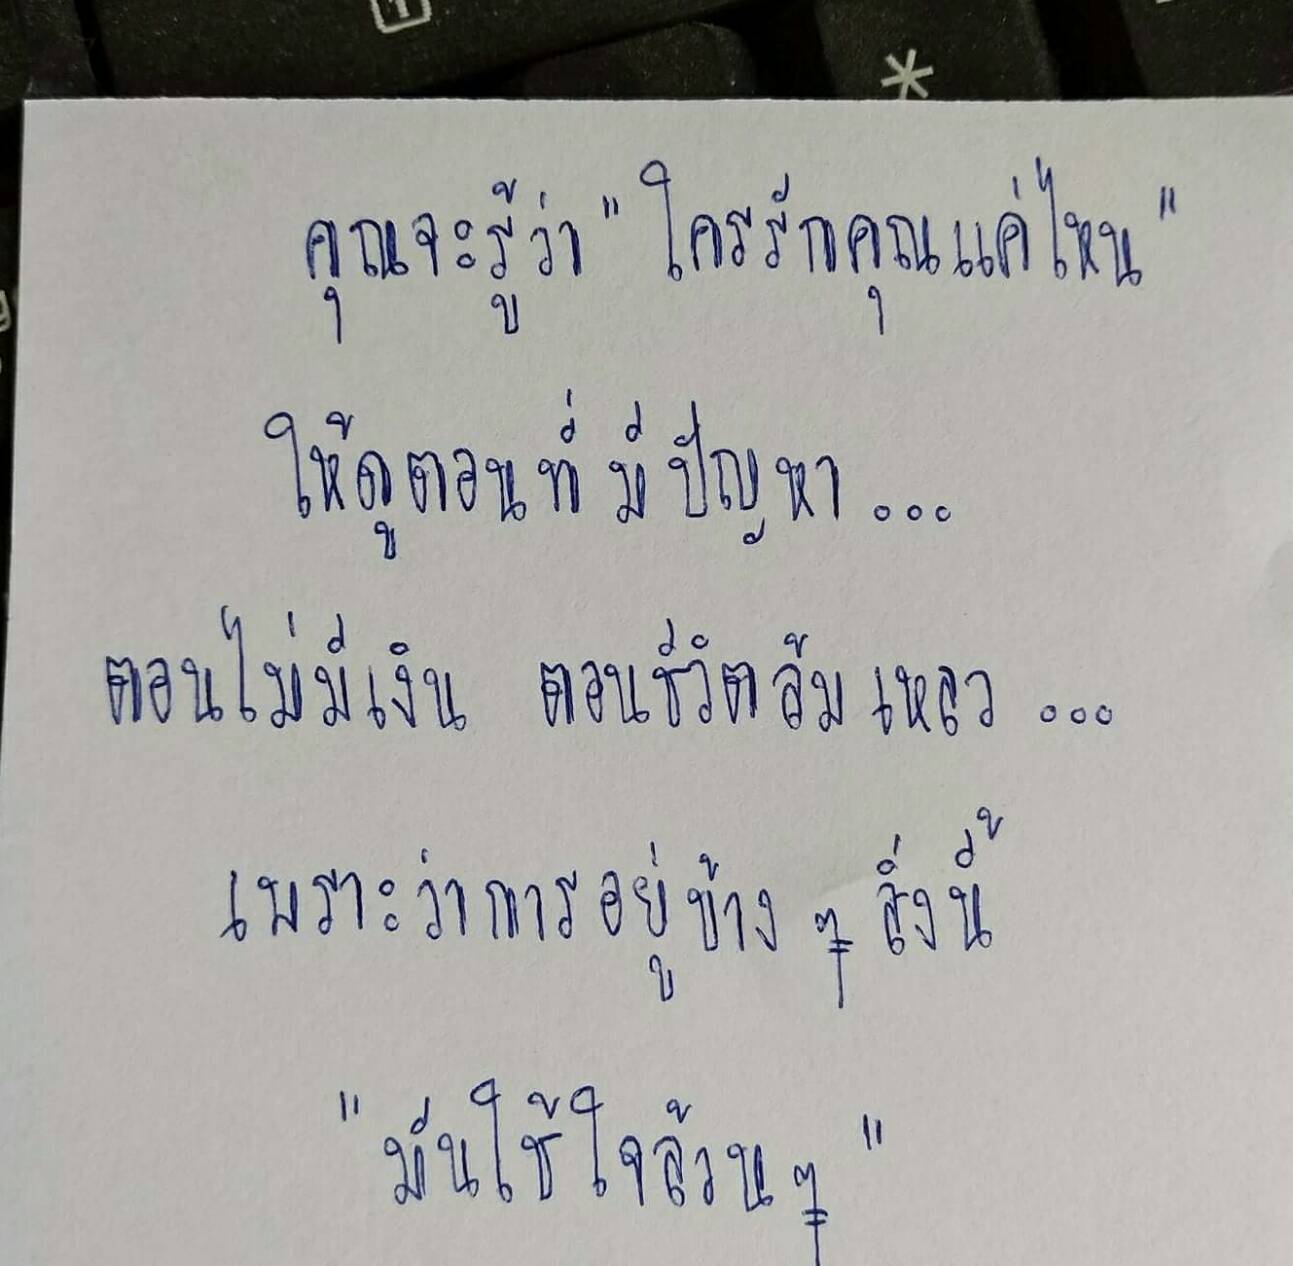 คุณจะรู้ว่า " ใครรักคุณแค่ไหน "
ให้ดูตอนที่ มี ปัญหา ...
ตอนไม่มีเงิน ตอนชีวิตล้มเหลว ...
เพราะว่าการอยู่ข้าง ๆ สิ่งนี้
" มันใช้ใจล้วน ๆ "